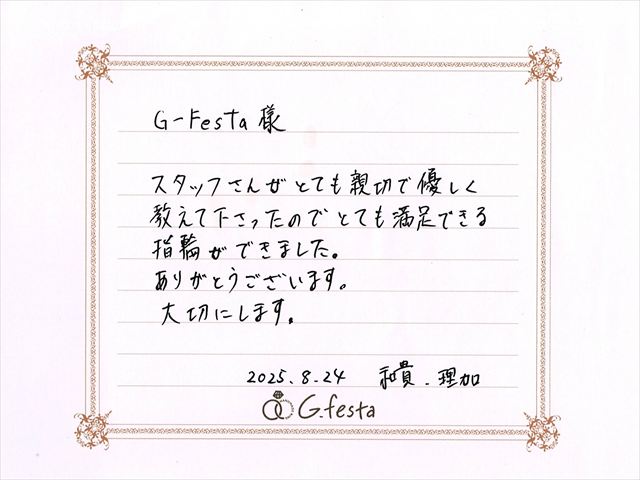 G-Festa様
スタッフさんがとても親切で優しく
教えて下さったのでとても満足できる
指輪ができました。
ありがとうございます。
大切にします。
2025.8.24 和貴.理加
G.festa